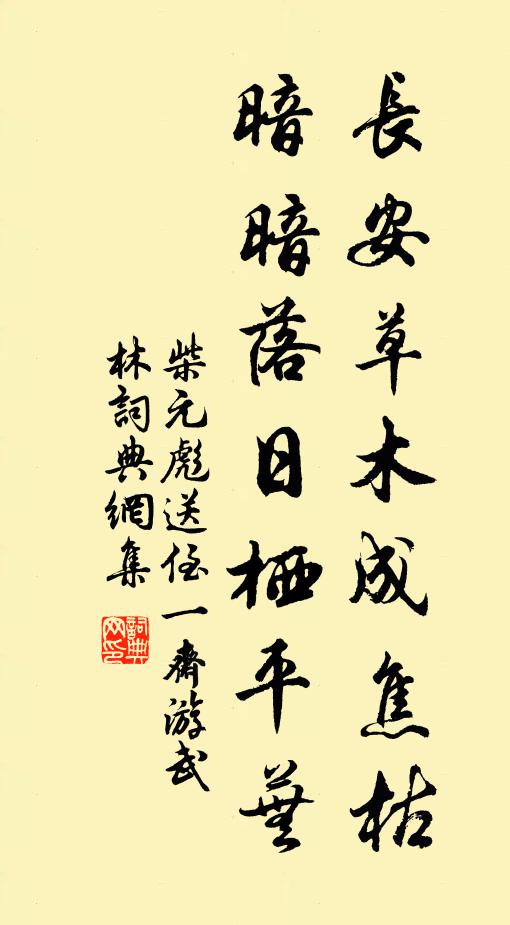 長安草木成焦枯
暗暗落日栖平蕪
柴元彪送侄一齋游武
林詞典網集
詞典网印